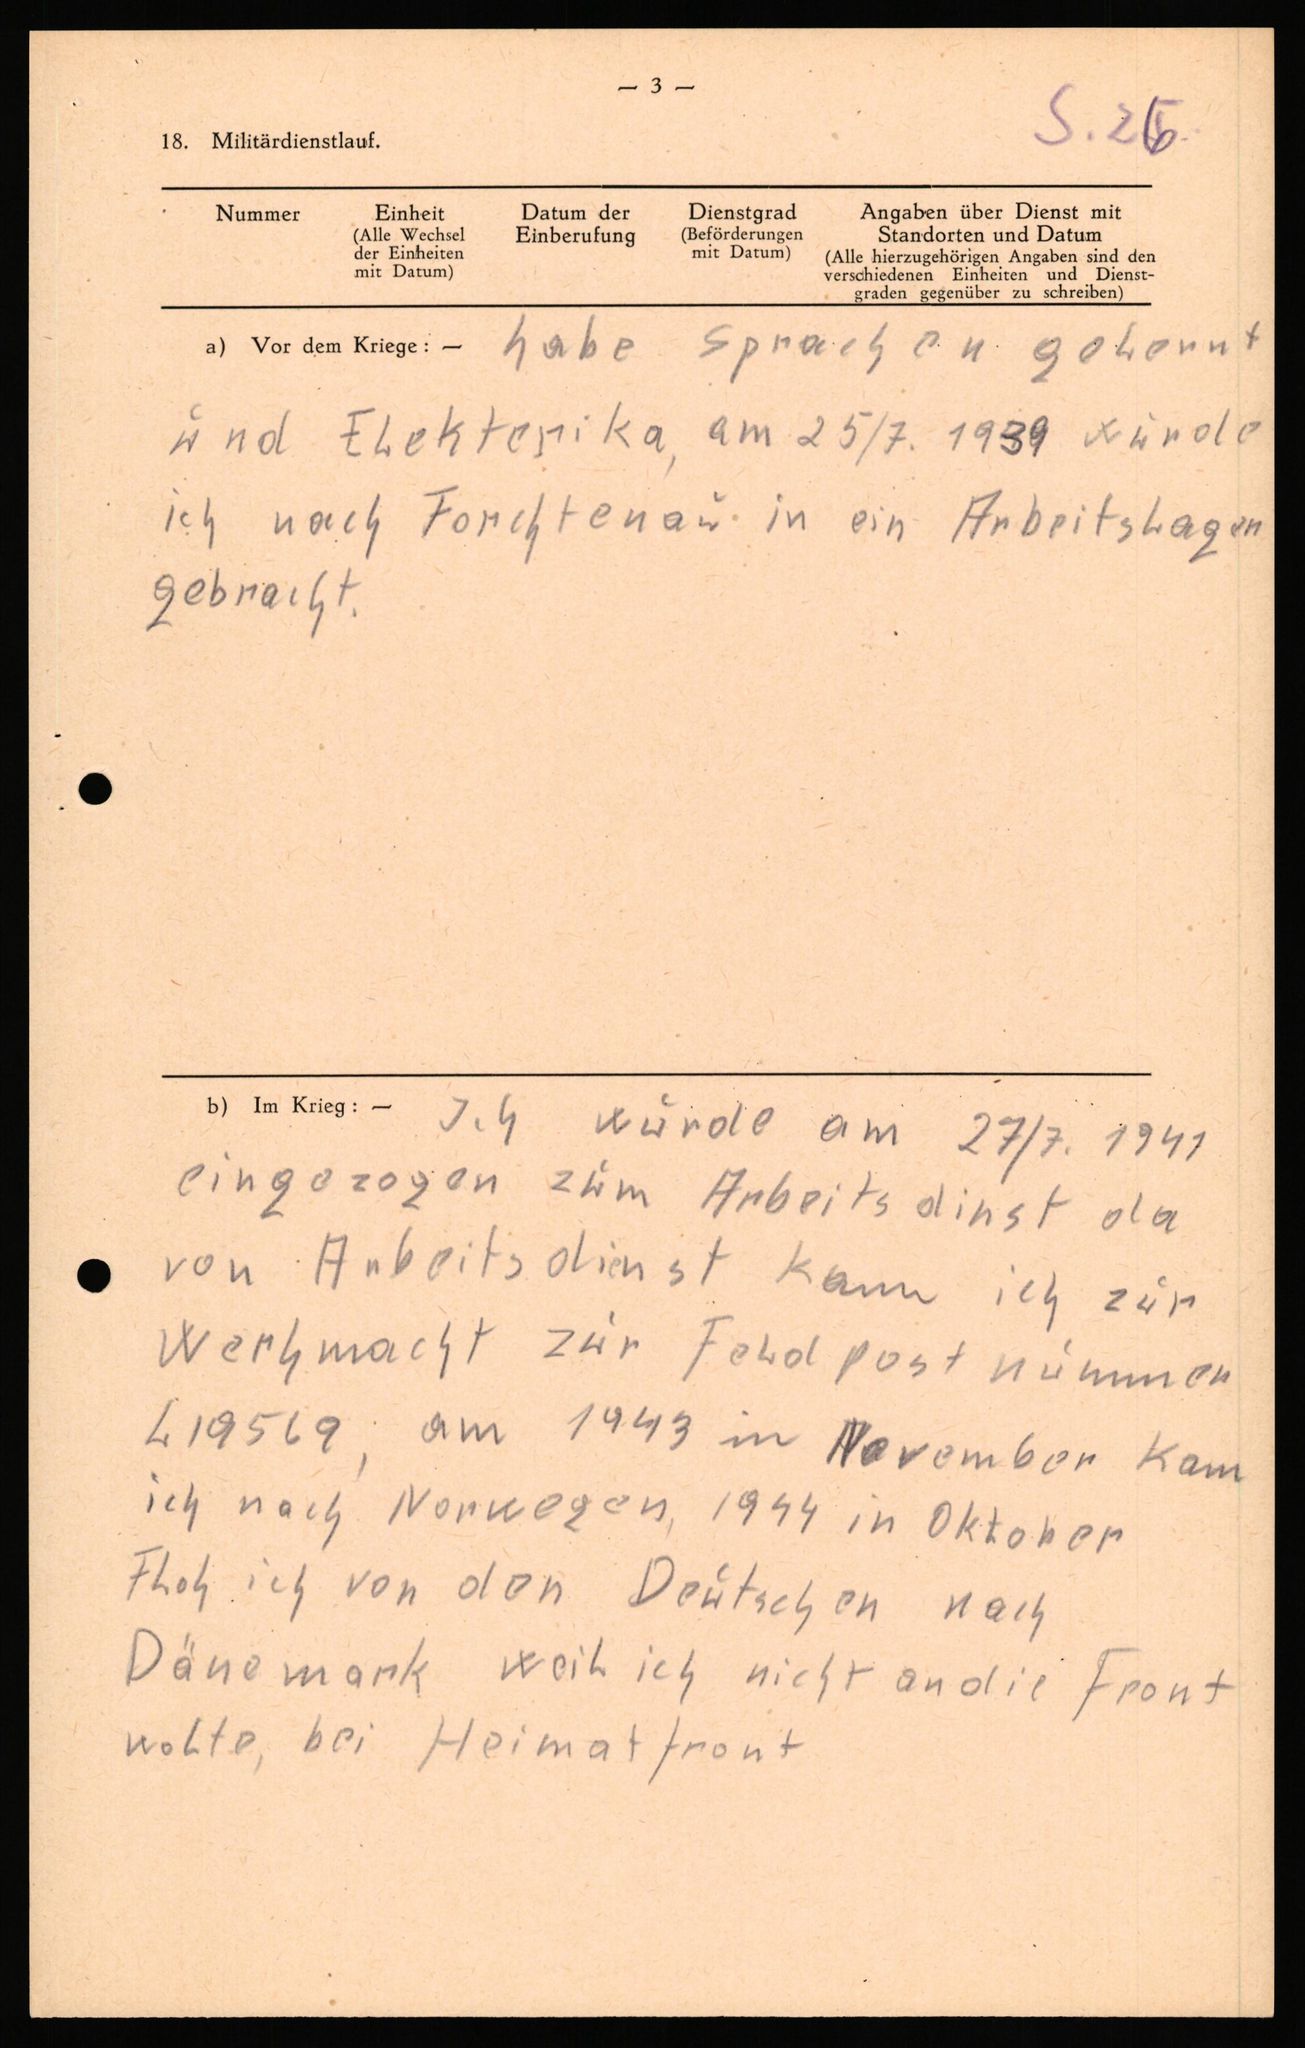 — 3 —
S. 26
18. Militärdienstlauf.
Nummer
Einheit
(Alle Wechsel
der Einheiten
mit Datum)
Datum der
Einberufung
Dienstgrad
(Beförderungen
mit Datum)
Angaben über Dienst mit
Standorten und Datum
(Alle hierzugehörigen Angaben sind den
verschiedenen Einheiten und Dienst-
graden gegenüber zu schreiben)
a) Vor dem Kriege: — habe sprachen gelernt
und Elekterika, am 25/7. 1939 wurde
ich nach Forchtenau in ein Arbeitslager
gebracht.
b) Im Krieg: — Ich wurde am 27/7. 1941
eingezogen zum Arbeitsdinst da
von Arbeitsdienst kam ich zur
Werhmacht zur Feldpostnummer
L19569, am 1943 in November kam
ich nach Norwegen, 1944 in Oktober
Floh ich von den Deutschen nach
Dänemark weil ich nicht an die Front
wolte, bei Heimatfront